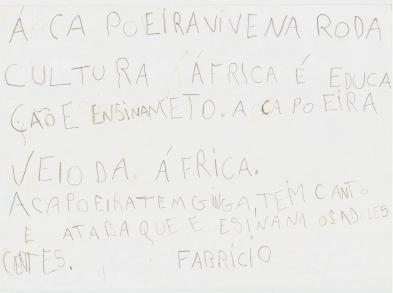 Á CAPOEIRA VIVE NA RODA
CULTURA ÁFRICA É EDUCA
ÇÃO E ENSINAMETO. A CAPOEIRA
VEIO DA. ÁFRICA.
A CAPOEIRA TEM GINGA, TEM CANTO
E ATABAQUE E ESINA NA OS ADOLES
CENTES. FABRÍCIO